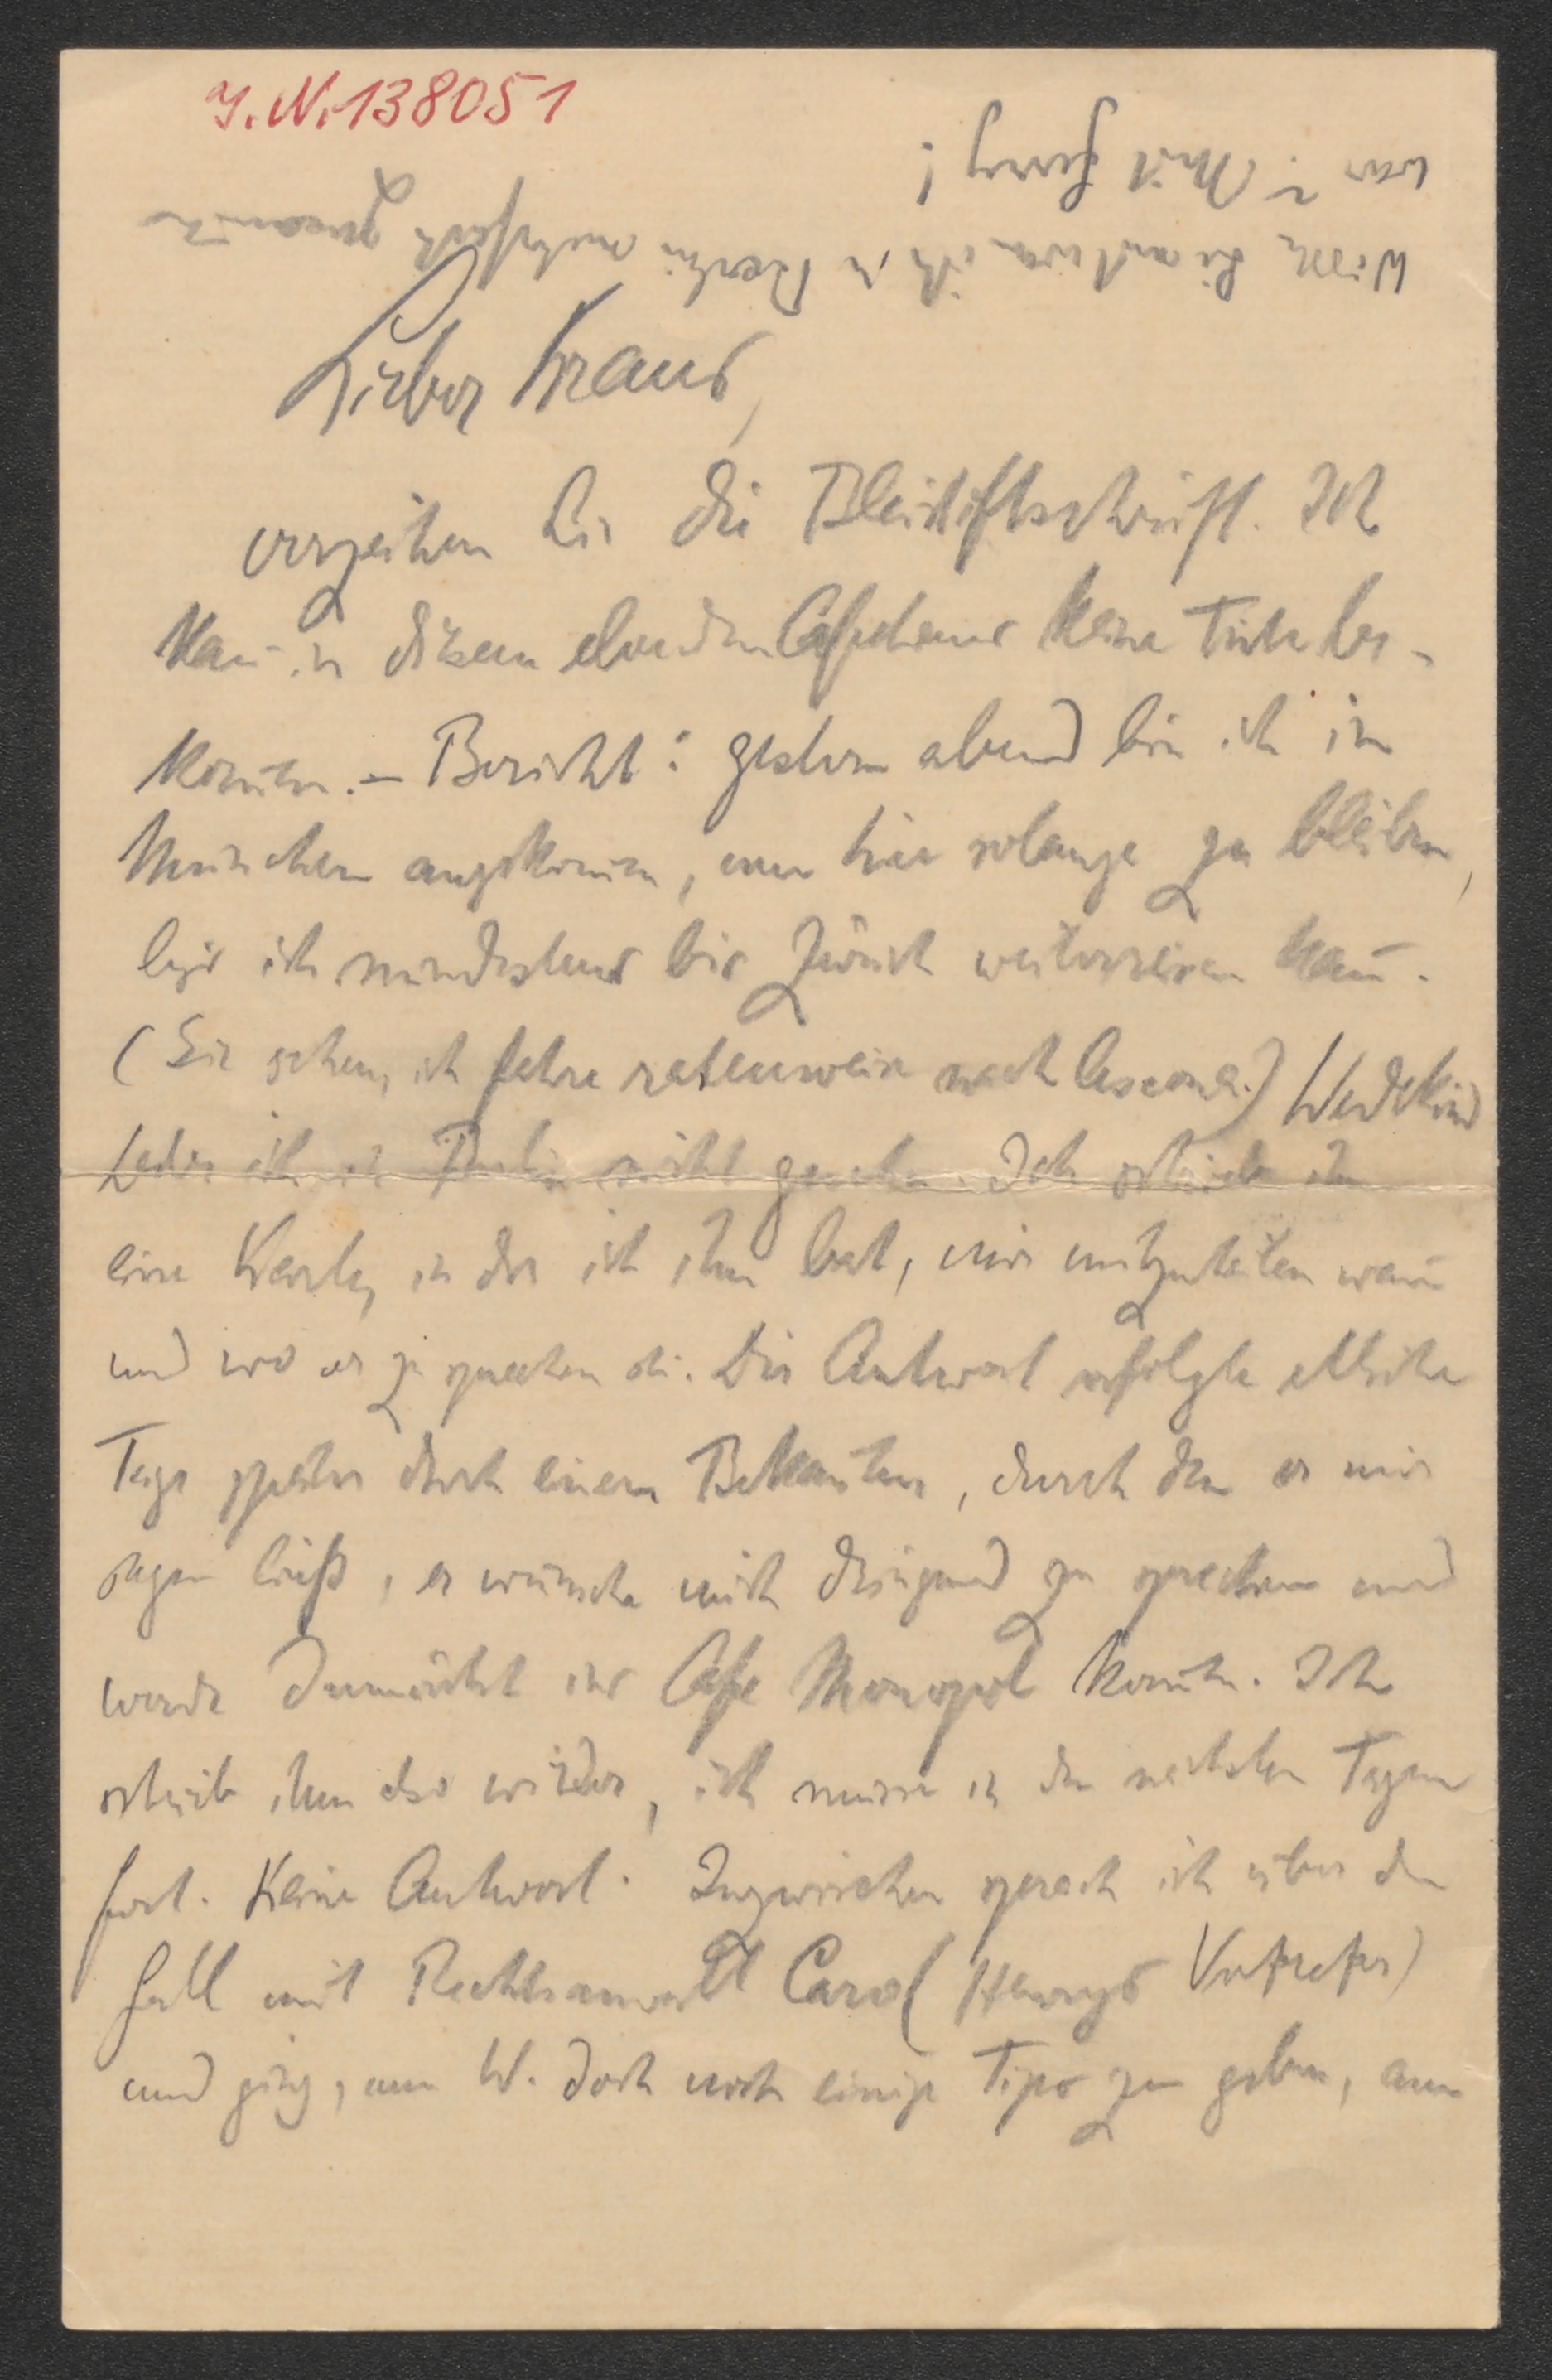 J.N. 138051
Wissen Sie auch wen ich in Berlin
war? Mit Henry!
Lieber Kraus,
verzeihen Sie die Bleistiftschrift. Ich
kañ in diesem elenden Cafehaus keine Tinte be-
kom̄en. – Bericht: gestern abend bin ich in
München angekom̄en, um hier solange zu bleiben,
bis ich mindestens bis Zürich weiterreisen kañ.
(Sie sehen, ich fahre ratenweise nach Ascona.) Wedekind
habe ich in Berlin nicht gesehen. Ich schrieb ihm
eine Karte, in der ich ihn bat, mir mitzuteilen wañ
und wo er zu sprechen sei. Die Antwort erfolgte etliche
Tage später durch einen Bekañten, durch den er mir
sagen ließ, er wünsche mich dringend zu sprechen und
werde demnächst ins Cafe Monopol kom̄en. Ich
schrieb ihm also wieder, ich müsse in den nächsten Tagen
fort. Keine Antwort. Inzwischen sprach ich über den
Fall mit Rechtsanwalt Caro (Henrys Vertreter)
und ging, um W. doch noch einige Tips zu geben, am